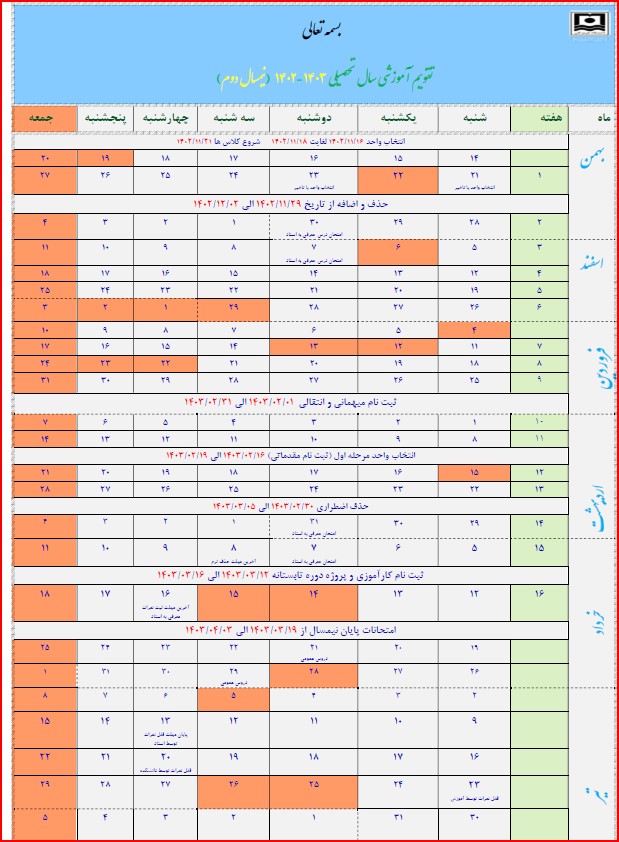 بسمه تعالی
تقویم آموزشی سال تحصیلی ۱۴۰۳-۱۴۰۲ (نیمسال دوم)
ماه هفته شنبه یکشنبه دوشنبه سه شنبه چهارشنبه پنجشنبه جمعه
بهمن
انتخاب واحد ۱۴۰۲/۱۱/۱۶ لغایت ۱۴۰۲/۱۱/۱۸ شروع کلاس ها ۱۴۰۲/۱۱/۲۱
۱۴ ۱۵ ۱۶ ۱۷ ۱۸ ۱۹ ۲۰
۱ ۲۱ ۲۲ ۲۳ ۲۴ ۲۵ ۲۶ ۲۷
انتخاب واحد با تاخیر انتخاب واحد با تاخیر
حذف و اضافه از تاریخ ۱۴۰۲/۱۱/۲۹ الی ۱۴۰۲/۱۲/۰۲
۲ ۲۸ ۲۹ ۳۰ ۱ ۲ ۳ ۴
امتحان درس معرفی به استاد
اسفند
۳ ۵ ۶ ۷ ۸ ۹ ۱۰ ۱۱
امتحان درس معرفی به استاد
۴ ۱۲ ۱۳ ۱۴ ۱۵ ۱۶ ۱۷ ۱۸
۵ ۱۹ ۲۰ ۲۱ ۲۲ ۲۳ ۲۴ ۲۵
۶ ۲۶ ۲۷ ۲۸ ۲۹ ۱ ۲ ۳
فروردین
۴ ۵ ۶ ۷ ۸ ۹ ۱۰
۷ ۱۱ ۱۲ ۱۳ ۱۴ ۱۵ ۱۶ ۱۷
۸ ۱۸ ۱۹ ۲۰ ۲۱ ۲۲ ۲۳ ۲۴
۹ ۲۵ ۲۶ ۲۷ ۲۸ ۲۹ ۳۰ ۳۱
ثبت نام میهمانی و انتقالی ۱۴۰۳/۰۲/۰۱ الی ۱۴۰۳/۰۲/۳۱
اردیبهشت
۱۰ ۱ ۲ ۳ ۴ ۵ ۶ ۷
۱۱ ۸ ۹ ۱۰ ۱۱ ۱۲ ۱۳ ۱۴
انتخاب واحد مرحله اول (ثبت نام مقدماتی) ۱۴۰۳/۰۲/۱۶ الی ۱۴۰۳/۰۲/۱۹
۱۲ ۱۵ ۱۶ ۱۷ ۱۸ ۱۹ ۲۰ ۲۱
۱۳ ۲۲ ۲۳ ۲۴ ۲۵ ۲۶ ۲۷ ۲۸
حذف اضطراری ۱۴۰۳/۰۲/۳۰ الی ۱۴۰۳/۰۳/۰۵
۱۴ ۲۹ ۳۰ ۳۱ ۱ ۲ ۳ ۴
امتحان معرفی به استاد
خرداد
۱۵ ۵ ۶ ۷ ۸ ۹ ۱۰ ۱۱
امتحان معرفی به استاد آخرین مهلت حذف ترم
ثبت نام کارآموزی و پروژه دوره تابستانه ۱۴۰۳/۰۳/۱۲ الی ۱۴۰۳/۰۳/۱۶
۱۶ ۱۲ ۱۳ ۱۴ ۱۵ ۱۶ ۱۷ ۱۸
آخرین مهلت ثبت نمرات
معرفی به استاد
امتحانات پایان نیمسال از ۱۴۰۳/۰۳/۱۹ الی ۱۴۰۳/۰۴/۰۳
۱۹ ۲۰ ۲۱ ۲۲ ۲۳ ۲۴ ۲۵
دروس عمومی
۲۶ ۲۷ ۲۸ ۲۹ ۳۰ ۳۱ ۱
دروس عمومی
تیر
۲ ۳ ۴ ۵ ۶ ۷ ۸
۹ ۱۰ ۱۱ ۱۲ ۱۳ ۱۴ ۱۵
پایان مهلت قفل نمرات
توسط استاد
۱۶ ۱۷ ۱۸ ۱۹ ۲۰ ۲۱ ۲۲
قفل نمرات توسط دانشکده
۲۳ ۲۴ ۲۵ ۲۶ ۲۷ ۲۸ ۲۹
قفل نمرات توسط آموزش
۳۰ ۳۱ ۱ ۲ ۳ ۴ ۵